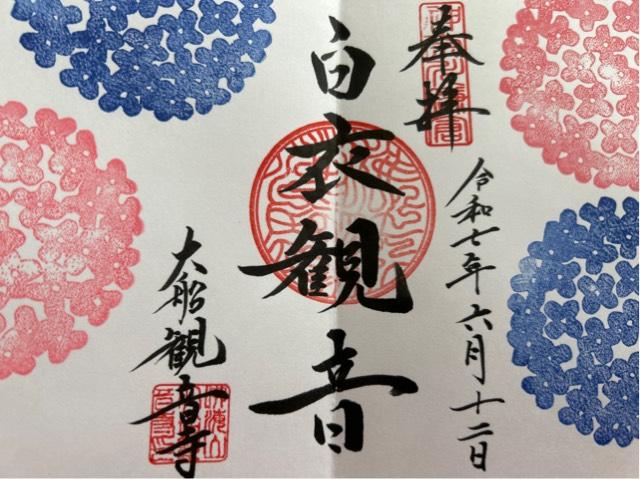 奉拝
令和七年六月十二日
白衣観音
大船観音寺